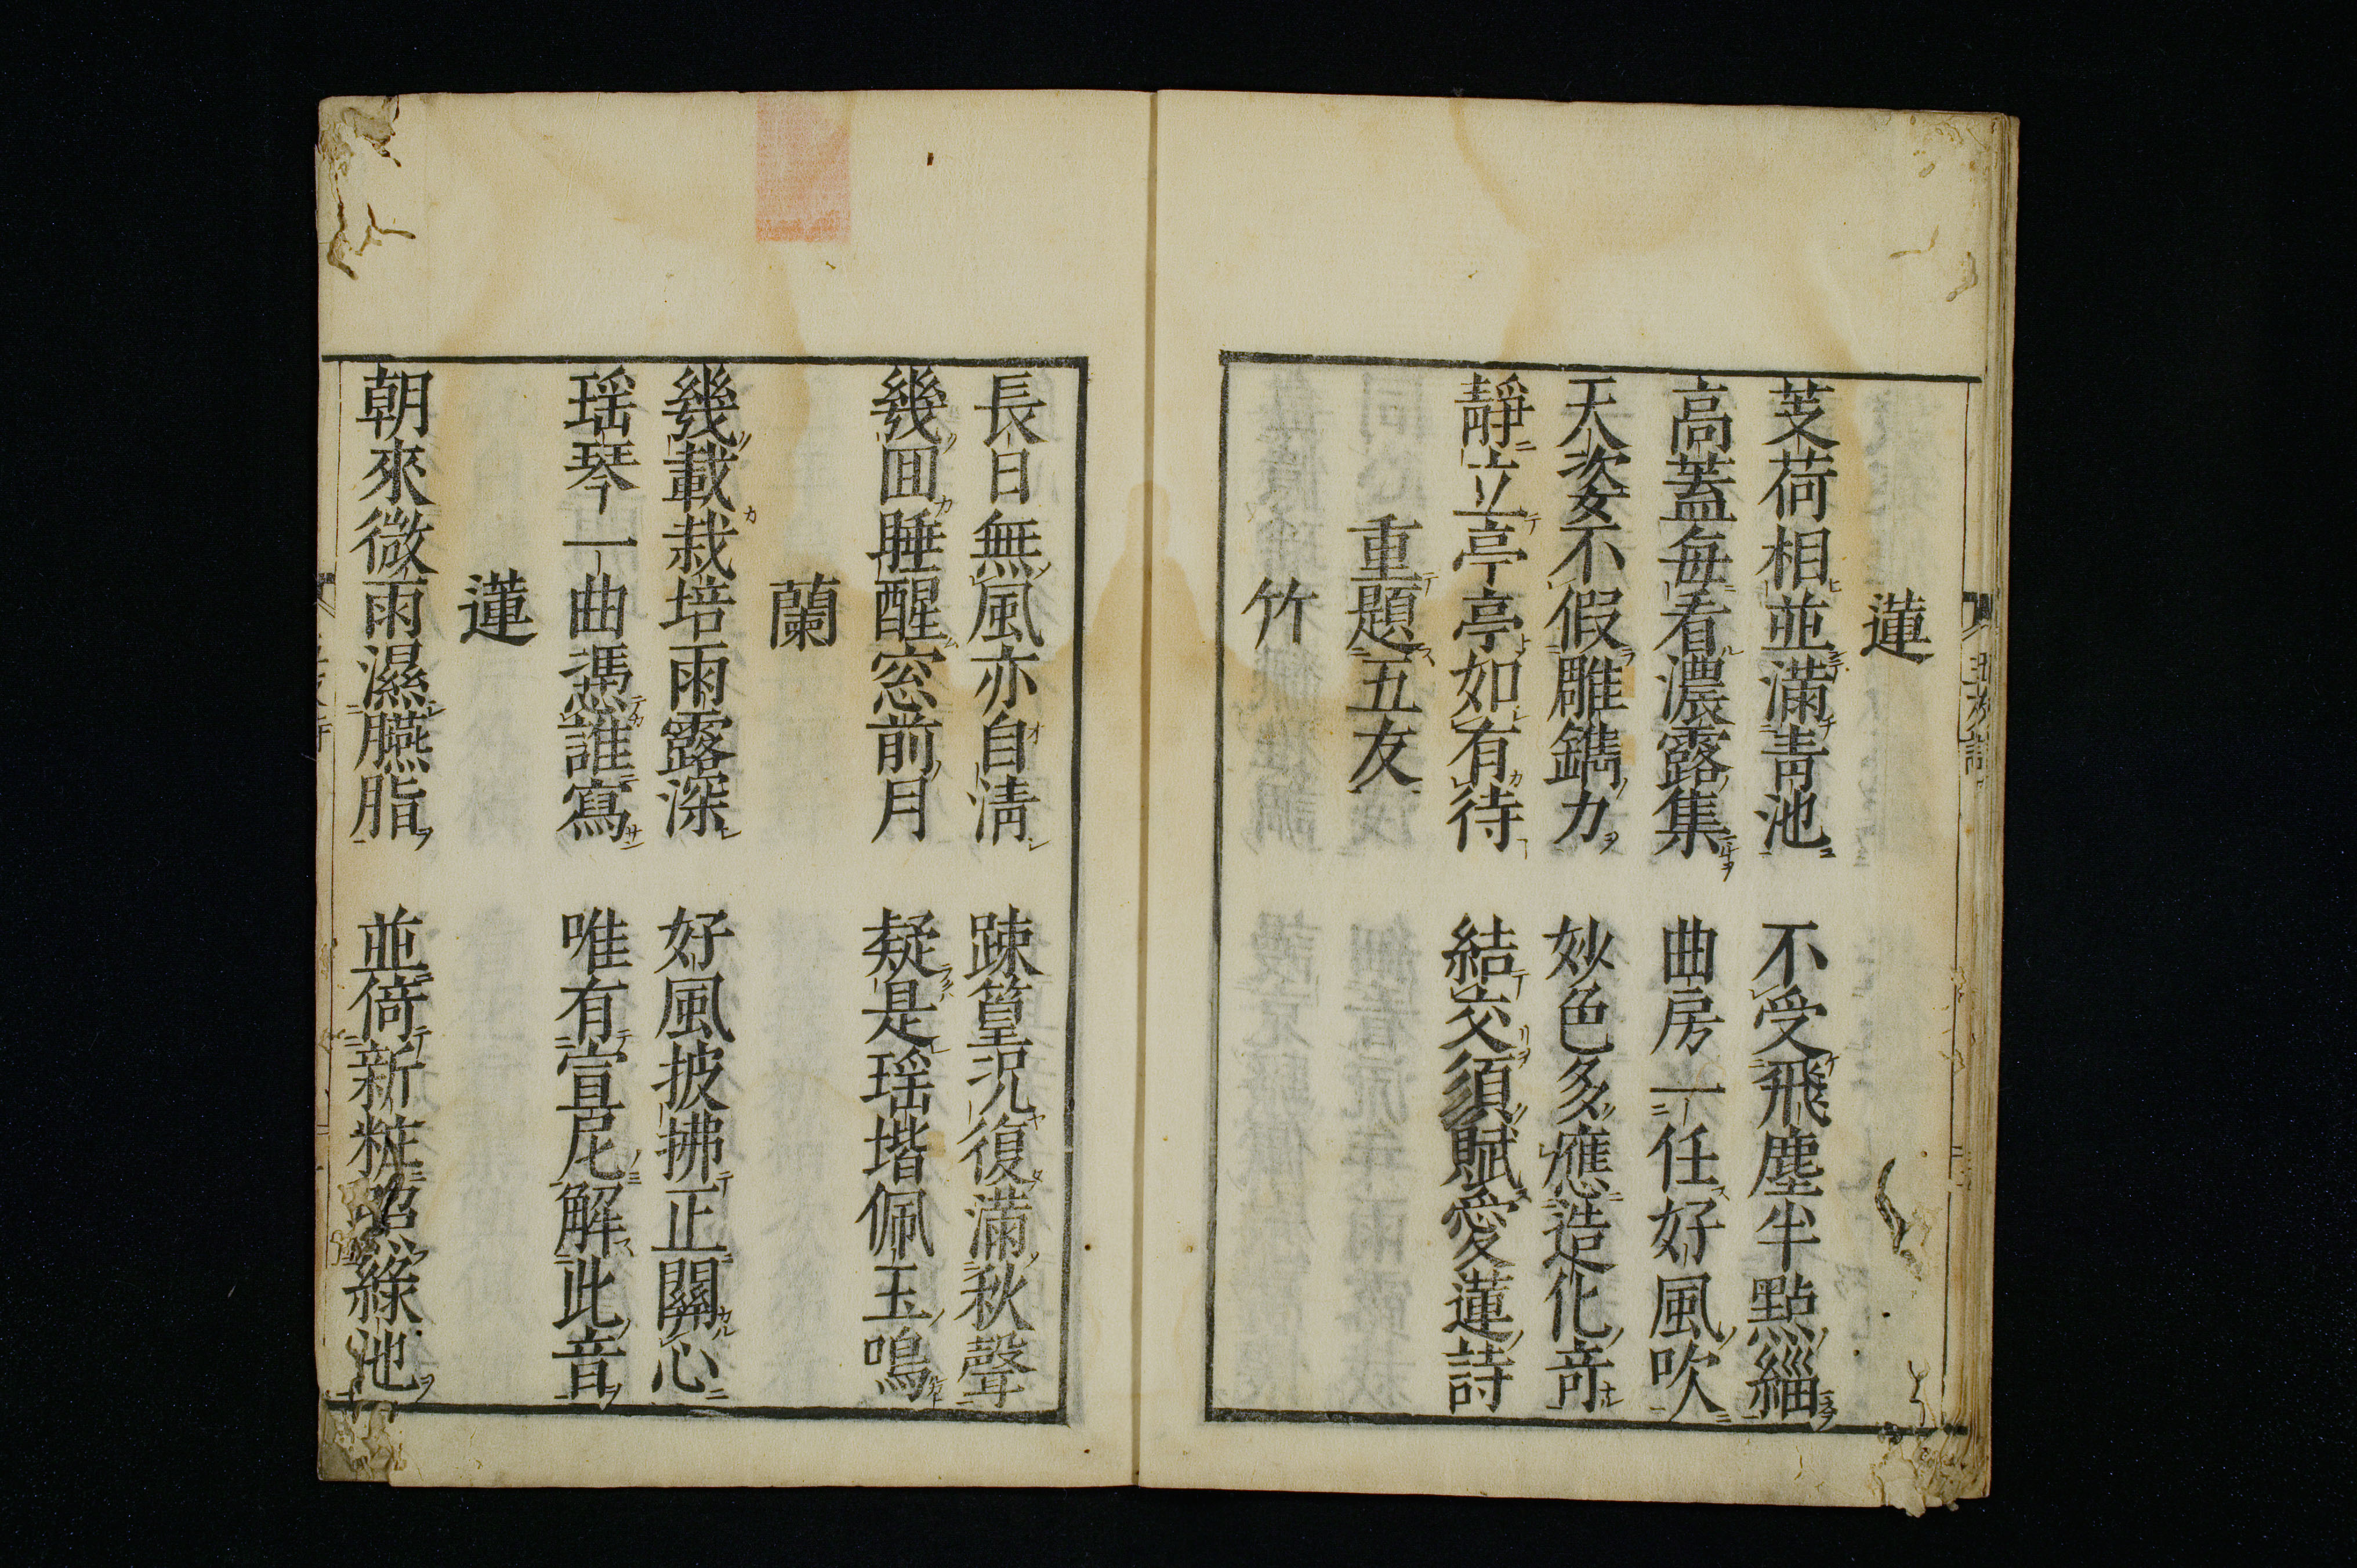 蓮
芰荷相並滿青池 不受飛塵半點緇
高蓋每看濃露集 曲房一任好風吹
天姿不假雕鐫力 妙色多應造化奇
靜立亭亭如有待 結交須賦愛蓮詩
重題五友
竹
長日無風亦自淸 踈篁況復滿秋聲
幾回睡醒窓前月 疑是瑶堦佩玉鳴
蘭
幾載栽培雨露深 好風披拂正關心
瑶琴一曲馮誰寫 唯有宣尼解此音
蓮
朝來微雨濕臙脂 並倚新粧照綠池